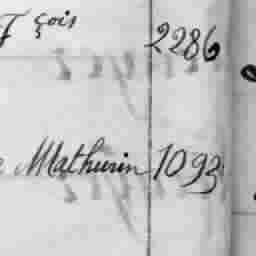 F çois 2286
Mathurin 1093